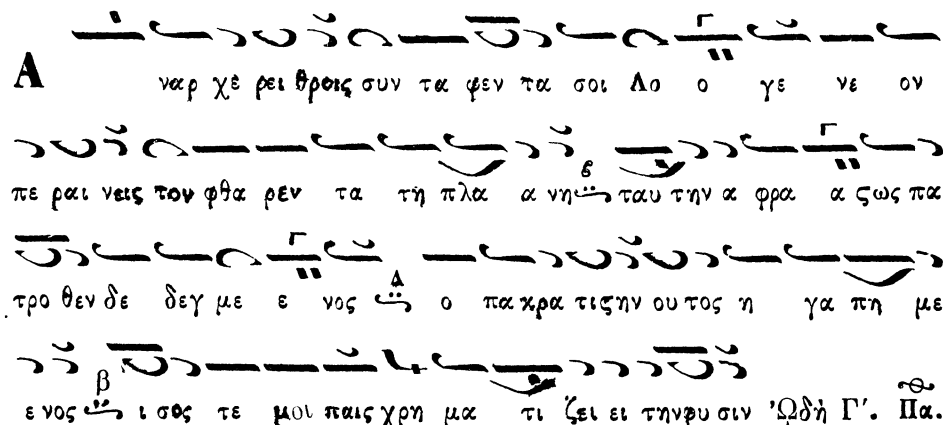 Α ναρ χε ρει θροις συν τα φεν τα σοι Λο ο γε νε ον
πε ραι νεις τον φθα ρεν τα τη πλα α νη ϐ ταυ την α φρα α ςως πα
τρο θεν δε δεγ με ε νος Δ ο πα κρα τιςην ου τος η γα πη με
ε νος β ι σος τε μοι παις χρη μα τι ζει ει τηνφυ σιν Ὠδή Γʹ. Πα.